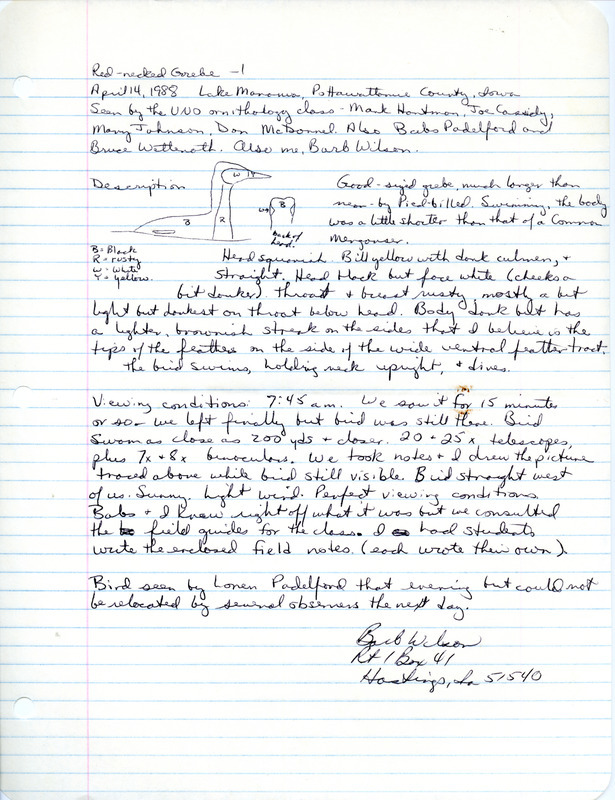 Red-necked Grebe - 1
April 14, 1988 Lake Manawa, Pottawattamie County, Iowa
Seen by the UNO ornithology class - Mark Hartman, Joe Cassidy,
Mary Johnson, Don McDonnel. Also Babs Padelford and
Bruce. Also me, Barb Wilson.
Description
W
Y
B
R
B = Black
R = rusty
W = White
Y = yellow.
W
B
Back of
head.
Good-sized grebe, much longer than
near-by Pied-billed. Swimming, the body
was a little shorter than that of a Common
Merganser.
Head squarish. Bill yellow with dark culmen, +
straight. Head black but face white (cheeks a
bit darker). Throat & breast rusty, mostly a bit
light but darkest on throat below head. Body dark but has
a lighter, brownish streak on the sides that I believe is the
tips of the feathers on the side of the wide ventral feather tract.
The bird swims, holding neck upright, + dives.
Viewing conditions: 7:45 am. We saw it for 15 minutes
or so - we left finally but bird was still there. Bird
swam as close as 200 yds + closer. 20 + 25x telescopes,
plus 7x + 8x binoculars. We took notes + I drew the picture
traced above while bird still visible. Bird straight west
of us. Sunny. Light wind. Perfect viewing conditions.
Babs + I knew right off what it was but we consulted
the field guides for the class. I had students
write the enclosed field notes. (each wrote their own).
Bird seen by Loren Padelford that evening but could not
be relocated by several observers the next day.
Barb Wilson
Rt 1 Box 41
Hastings, Ia 51540